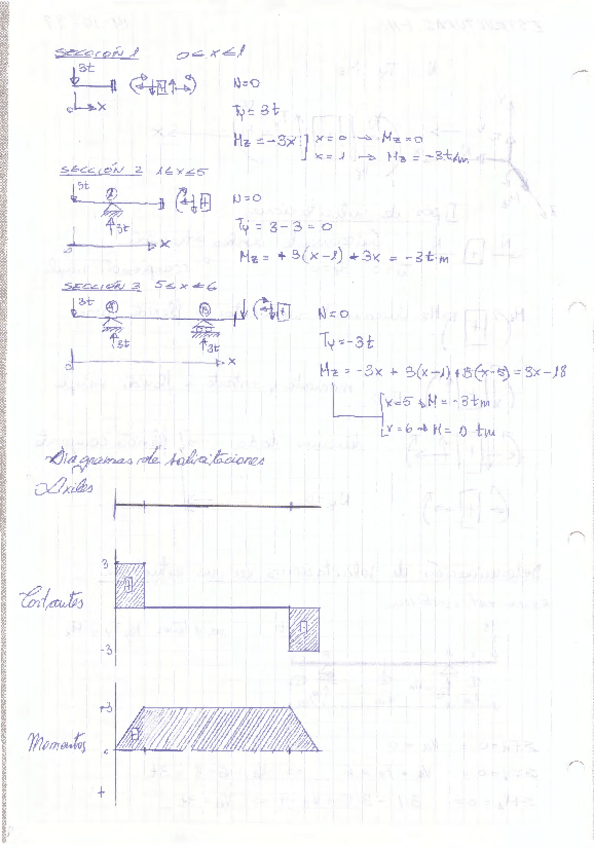 SECCIÓN 1 0≤x≤1
3t
x
N=0
Ty=3t
Mz=-3x x=0 → Mz=0
x=1 → Mz=-3t·m
SECCIÓN 2 1≤x≤5
3t
A
3t
x
N=0
Ty = 3-3=0
Mz= +3(x-1) -3x = -3t·m
SECCIÓN 3 5≤x≤6
3t
A
B
3t
3t
x
N=0
Ty=-3t
Mz= -3x + 3(x-1)+3(x-5)=3x-18
x=5 → M=-3tm
x=6 → M=0 tm
Diagramas de solicitaciones
Axiles
3
+
Cortantes
-
-3
-3
-
Momentos
+